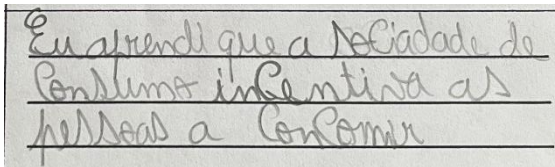 Eu aprendi que a sociadade de
Consumo incentiva as
pessoas a Concomir